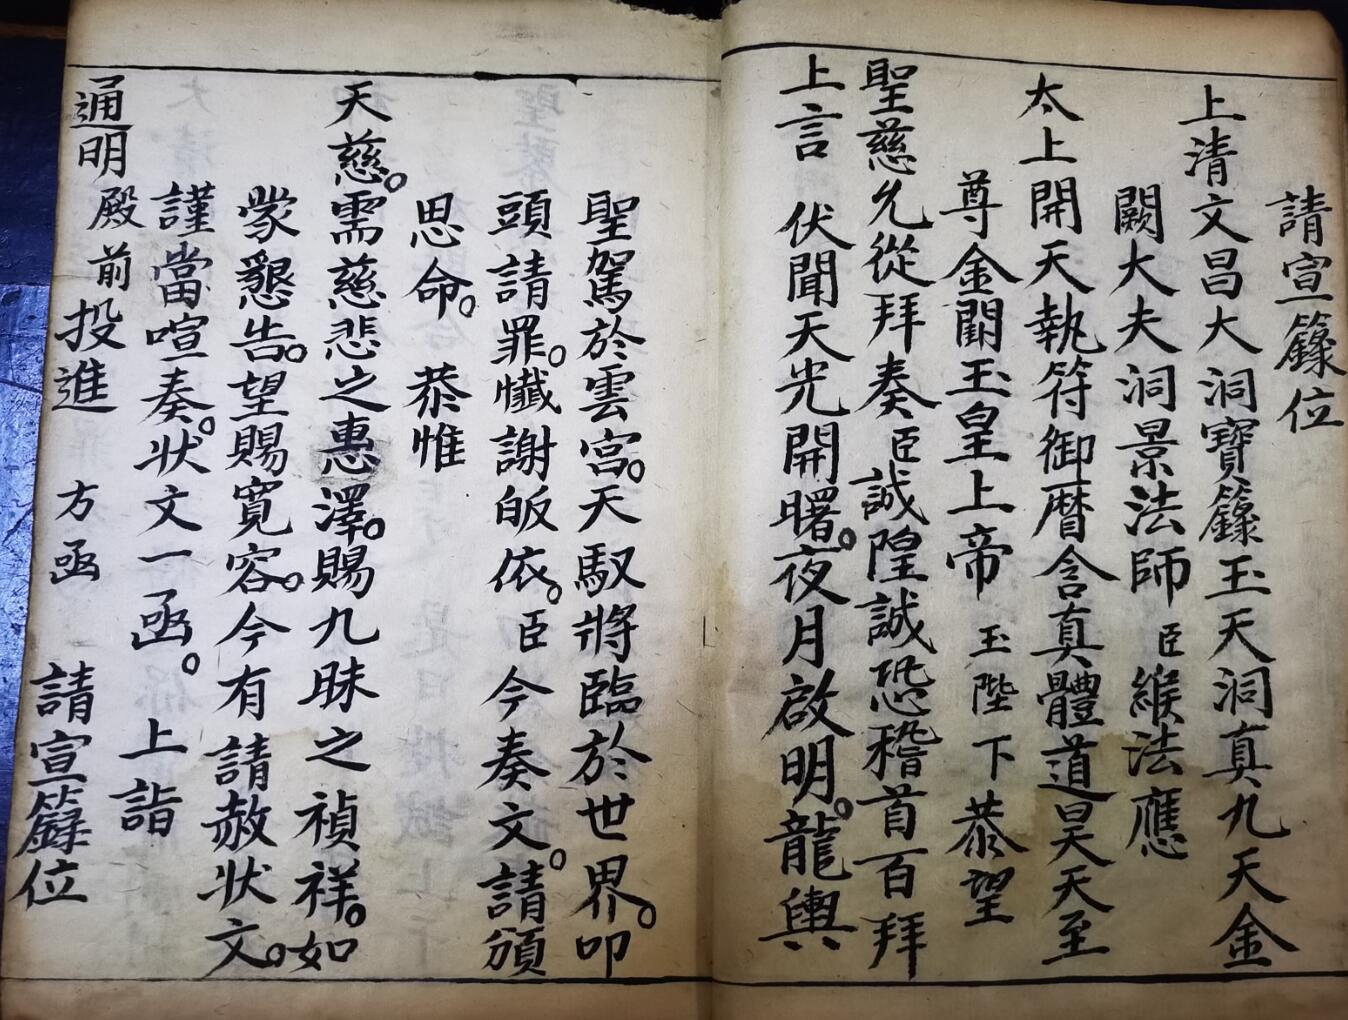 請宣籙位
上清文昌大洞寶籙玉天洞真九天金
闕大夫洞景法師臣緱法應
太上開天執符御暦含真體道昊天至
尊金闕玉皇上帝玉陛下恭望
聖慈允從拜奏臣誠隍誠恐稽首百拜
上言伏聞天光開曙。夜月啟明。龍輿
聖駕於雲宮。天馭將臨於世界。叩
頭請罪。懺謝皈依。臣今奏文。請頒
思命。恭惟
天慈。需慈悲之惠澤。賜九昧之禎祥。如
蒙懇告。望賜寬容。今有請赦狀文。
謹當喧奏。狀文一函。上詣
通明殿前投進方函請宣籙位